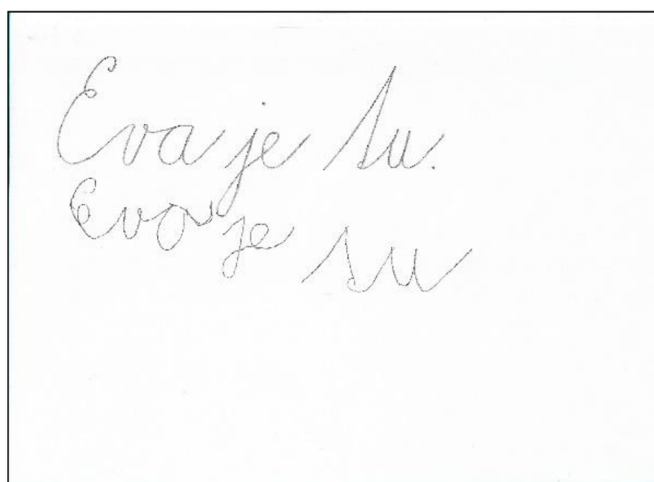 Eva je su.
Eva je su